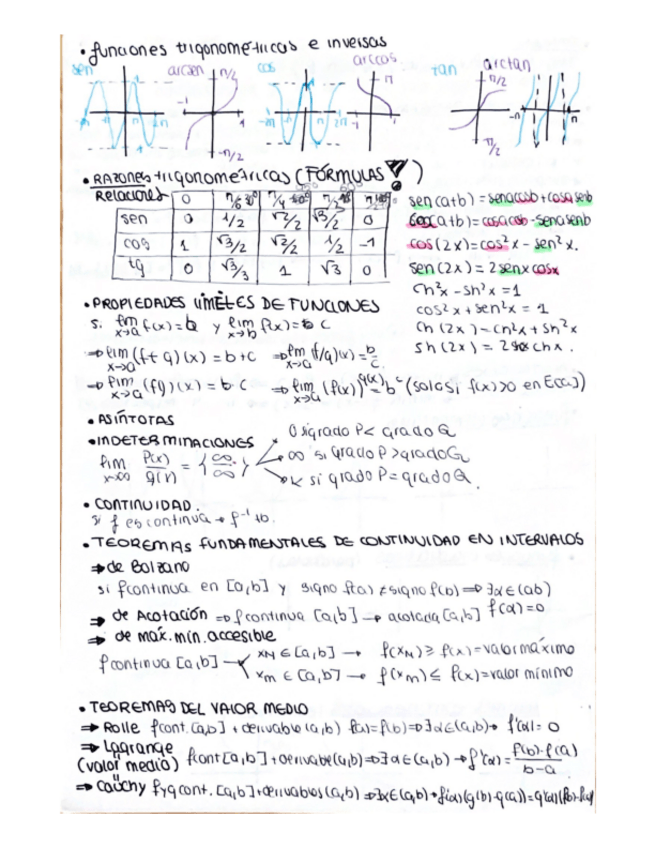 • funciones trigonométricas e inversas
sen arcsen π/2 cos arccos tan arctan π/2
-π π -1 1 -π π 2π -1 1 -π π
-π/2 -π/2
• RAZONES trigonométricas (FÓRMULAS)
Relaciones 0 π/6 30° π/4 π/3
sen 0 1/2 √2/2 √3/2 0
cos 1 √3/2 √2/2 1/2 -1
tg 0 √3/3 1 √3 0
sen(a+b)=senacosb+cosasenb
cos(a+b)=cosacosb-senasenb
cos(2x)=cos²x-sen²x.
sen(2x)=2senxcosx
ch²x-sh²x=1
cos²x+sen²x=1
ch(2x)-ch²x+sh²x
sh(2x)=2shxchx.
• PROPIEDADES LÍMITES DE FUNCIONES
si lim x→a f(x)=b y lim x→b f(x)=c
⇒lim x→a (f+g)(x)=b+c ⇒lim x→a (f/g)(x)=b/c
⇒lim x→a (fg)(x)=b·c ⇒lim x→a (f(x))^g(x)=b^c (solo si f(x)>0 en E(a))
• ASÍNTOTAS
• INDETERMINACIONES
0 si grado P< grado Q
lim x→∞ P(x)/g(x) = {∞/∞} ∞ si grado P>grado Q
k si grado P=grado Q.
• CONTINUIDAD.
si f es continua → f⁻¹ tb.
• TEOREMAS FUNDAMENTALES DE CONTINUIDAD EN INTERVALOS
⇒de Bolzano
si f continua en [a,b] y signo f(a)≠signo f(b)⇒∃α∈(ab)
f(α)=0
⇒ de Acotación ⇒f continua [a,b] → acotada [a,b]
⇒ de máx.mín.accesible
f continua [a,b] xM∈[a,b] → f(xM)≥f(x)=valor máximo
xm∈[a,b] → f(xm)≤f(x)=valor mínimo
• TEOREMAS DEL VALOR MEDIO
⇒ Rolle f cont.[a,b] + derivable (a,b) f(a)=f(b)⇒∃α∈(a,b)→ f'(α)=0
⇒ Lagrange
(valor medio) f cont[a,b]+derivable(a,b)⇒∃α∈(a,b)→f'(α)=f(b)-f(a)/b-a
⇒ Cauchy f y g cont.[a,b]+derivables(a,b)⇒∃α∈(a,b)→f'(α)(g(b)-g(a))=g'(α)(f(b)-f(a))